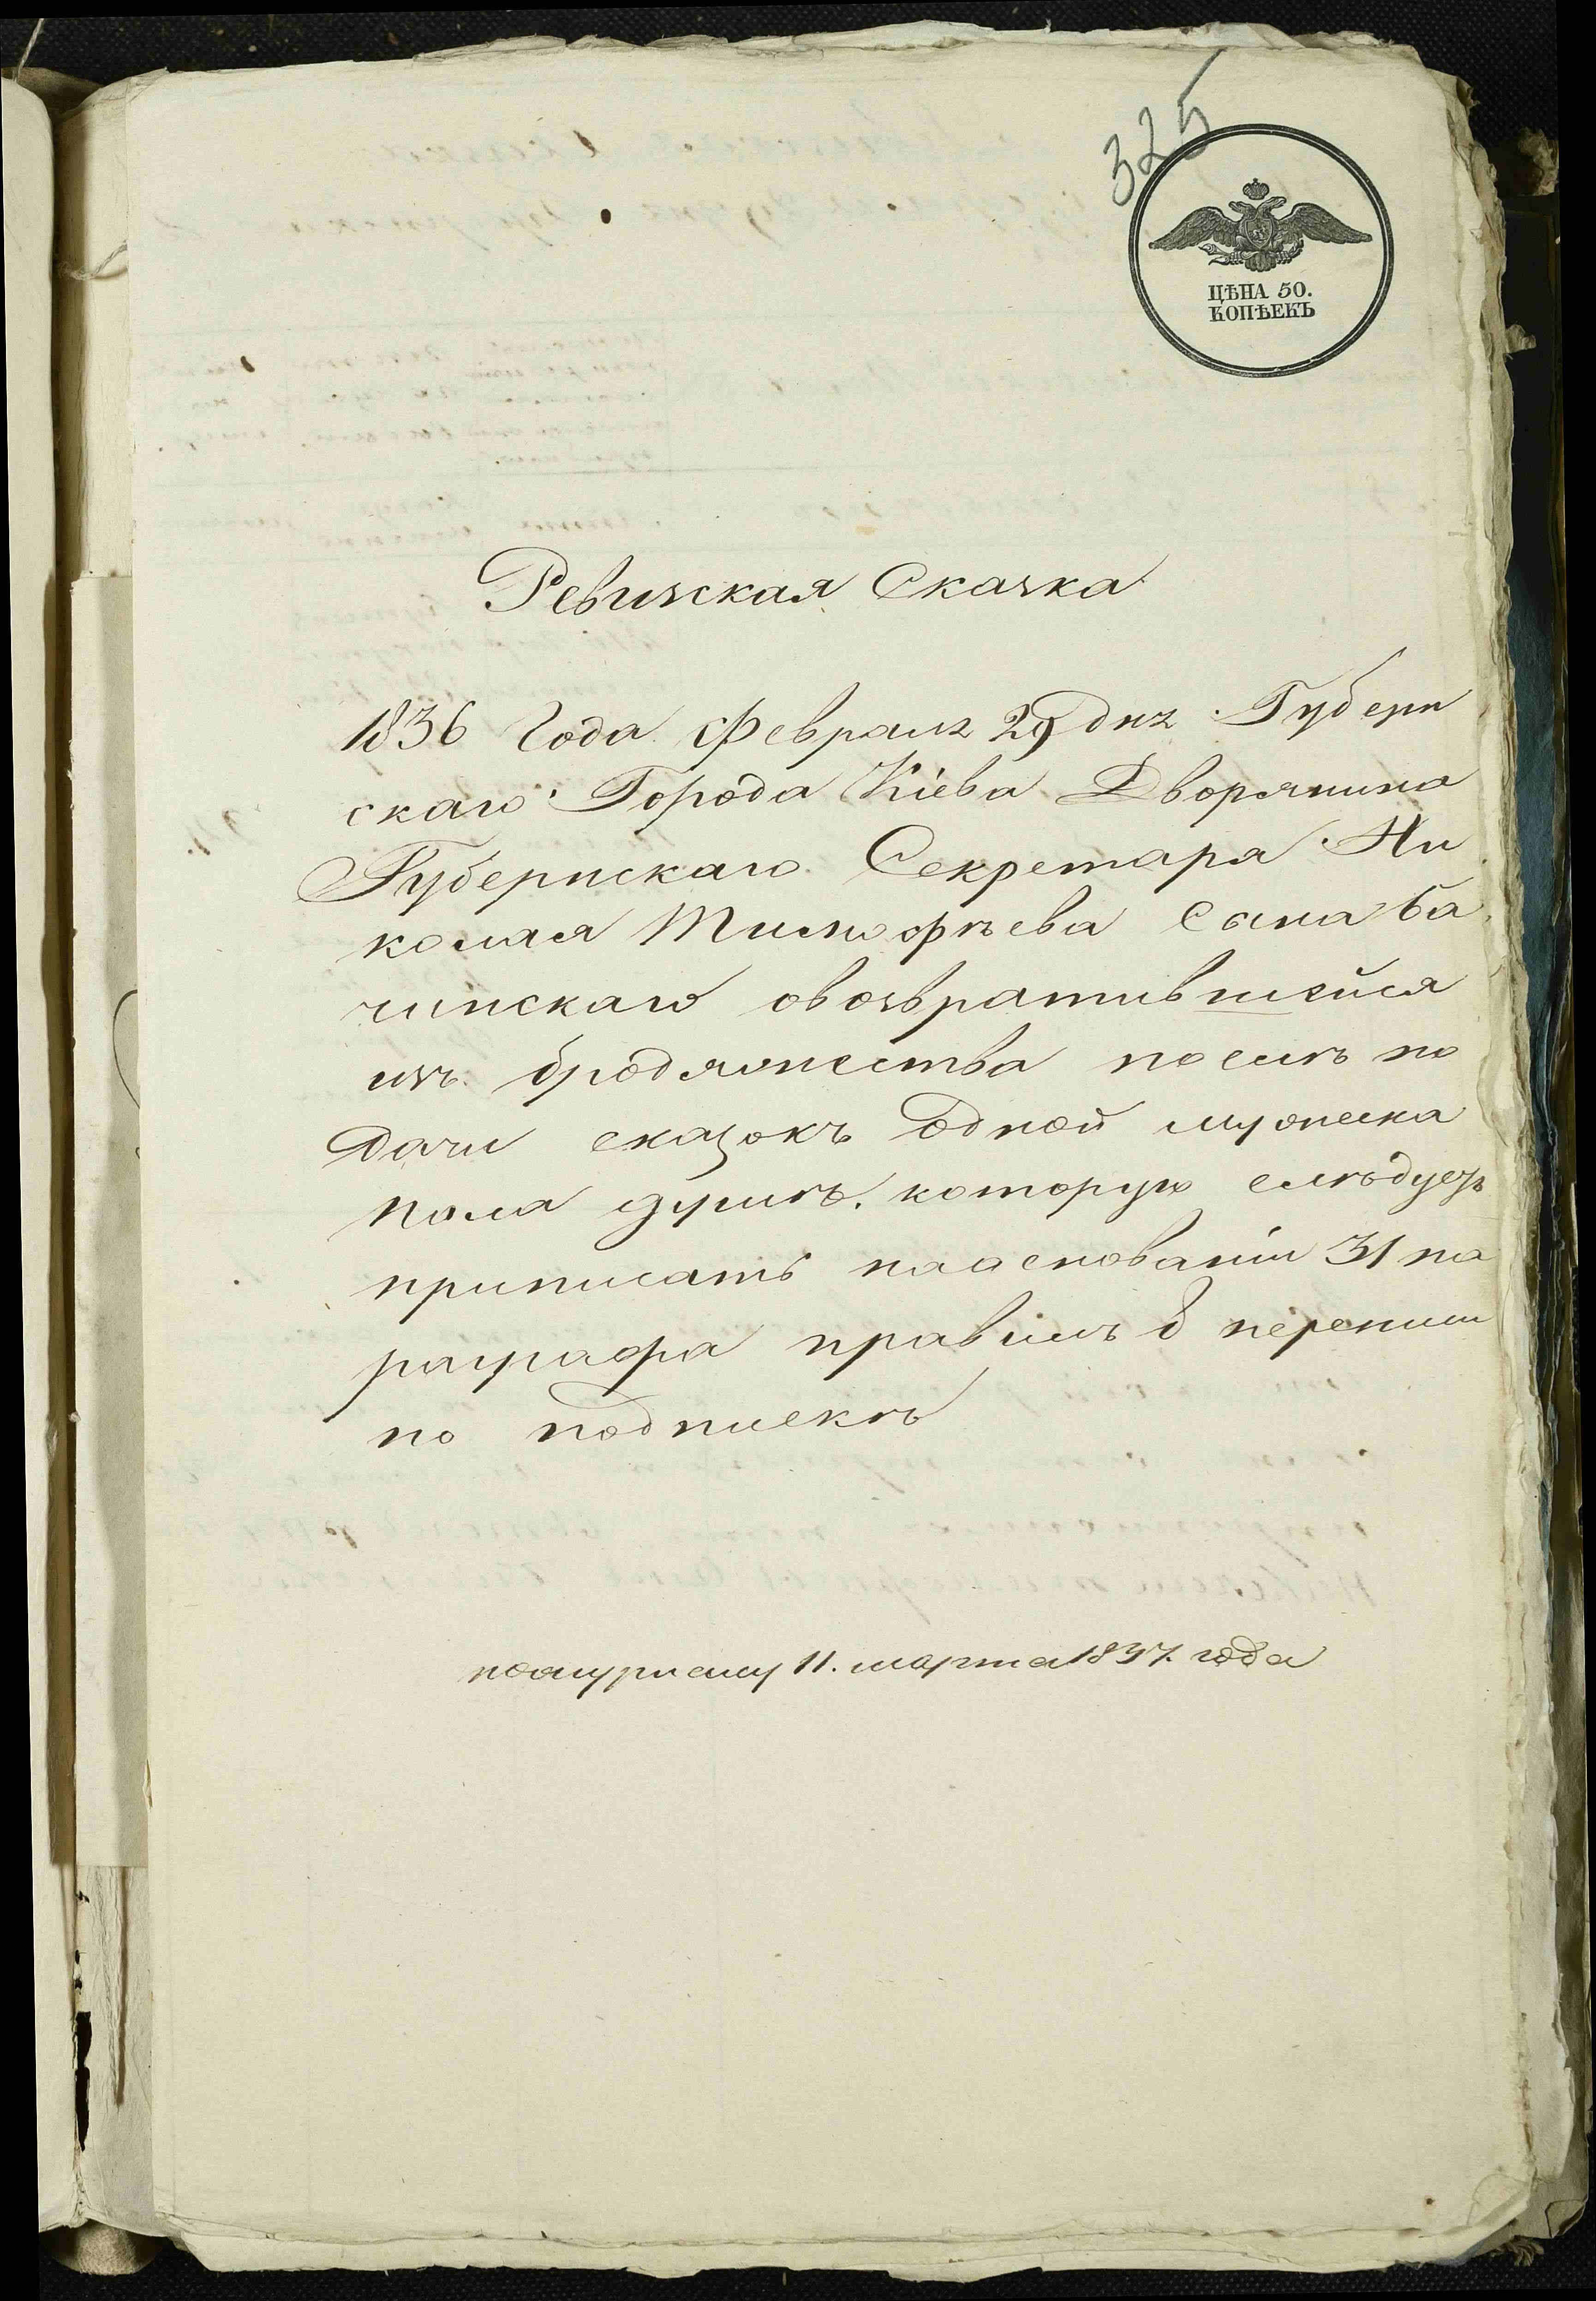 325
ЦѢНА 50.
КОПѢЕКЪ
Ревизская Сказка
1836 Года Февраля 29 дня Губерн
скаго Города Кіева Дворянина
Губернскаго Секретаря Ни
колая Тимофѣева Сына Ба
чинскаго овозвратившейся
изъ бродяжества послѣ по
дачи сказокъ одной мужеска
пола душѣ. которую слѣдуетъ
приписать наоснованіи 31 па
раграфа правилъ о переписи
по подпискѣ
11. марта 1837. года